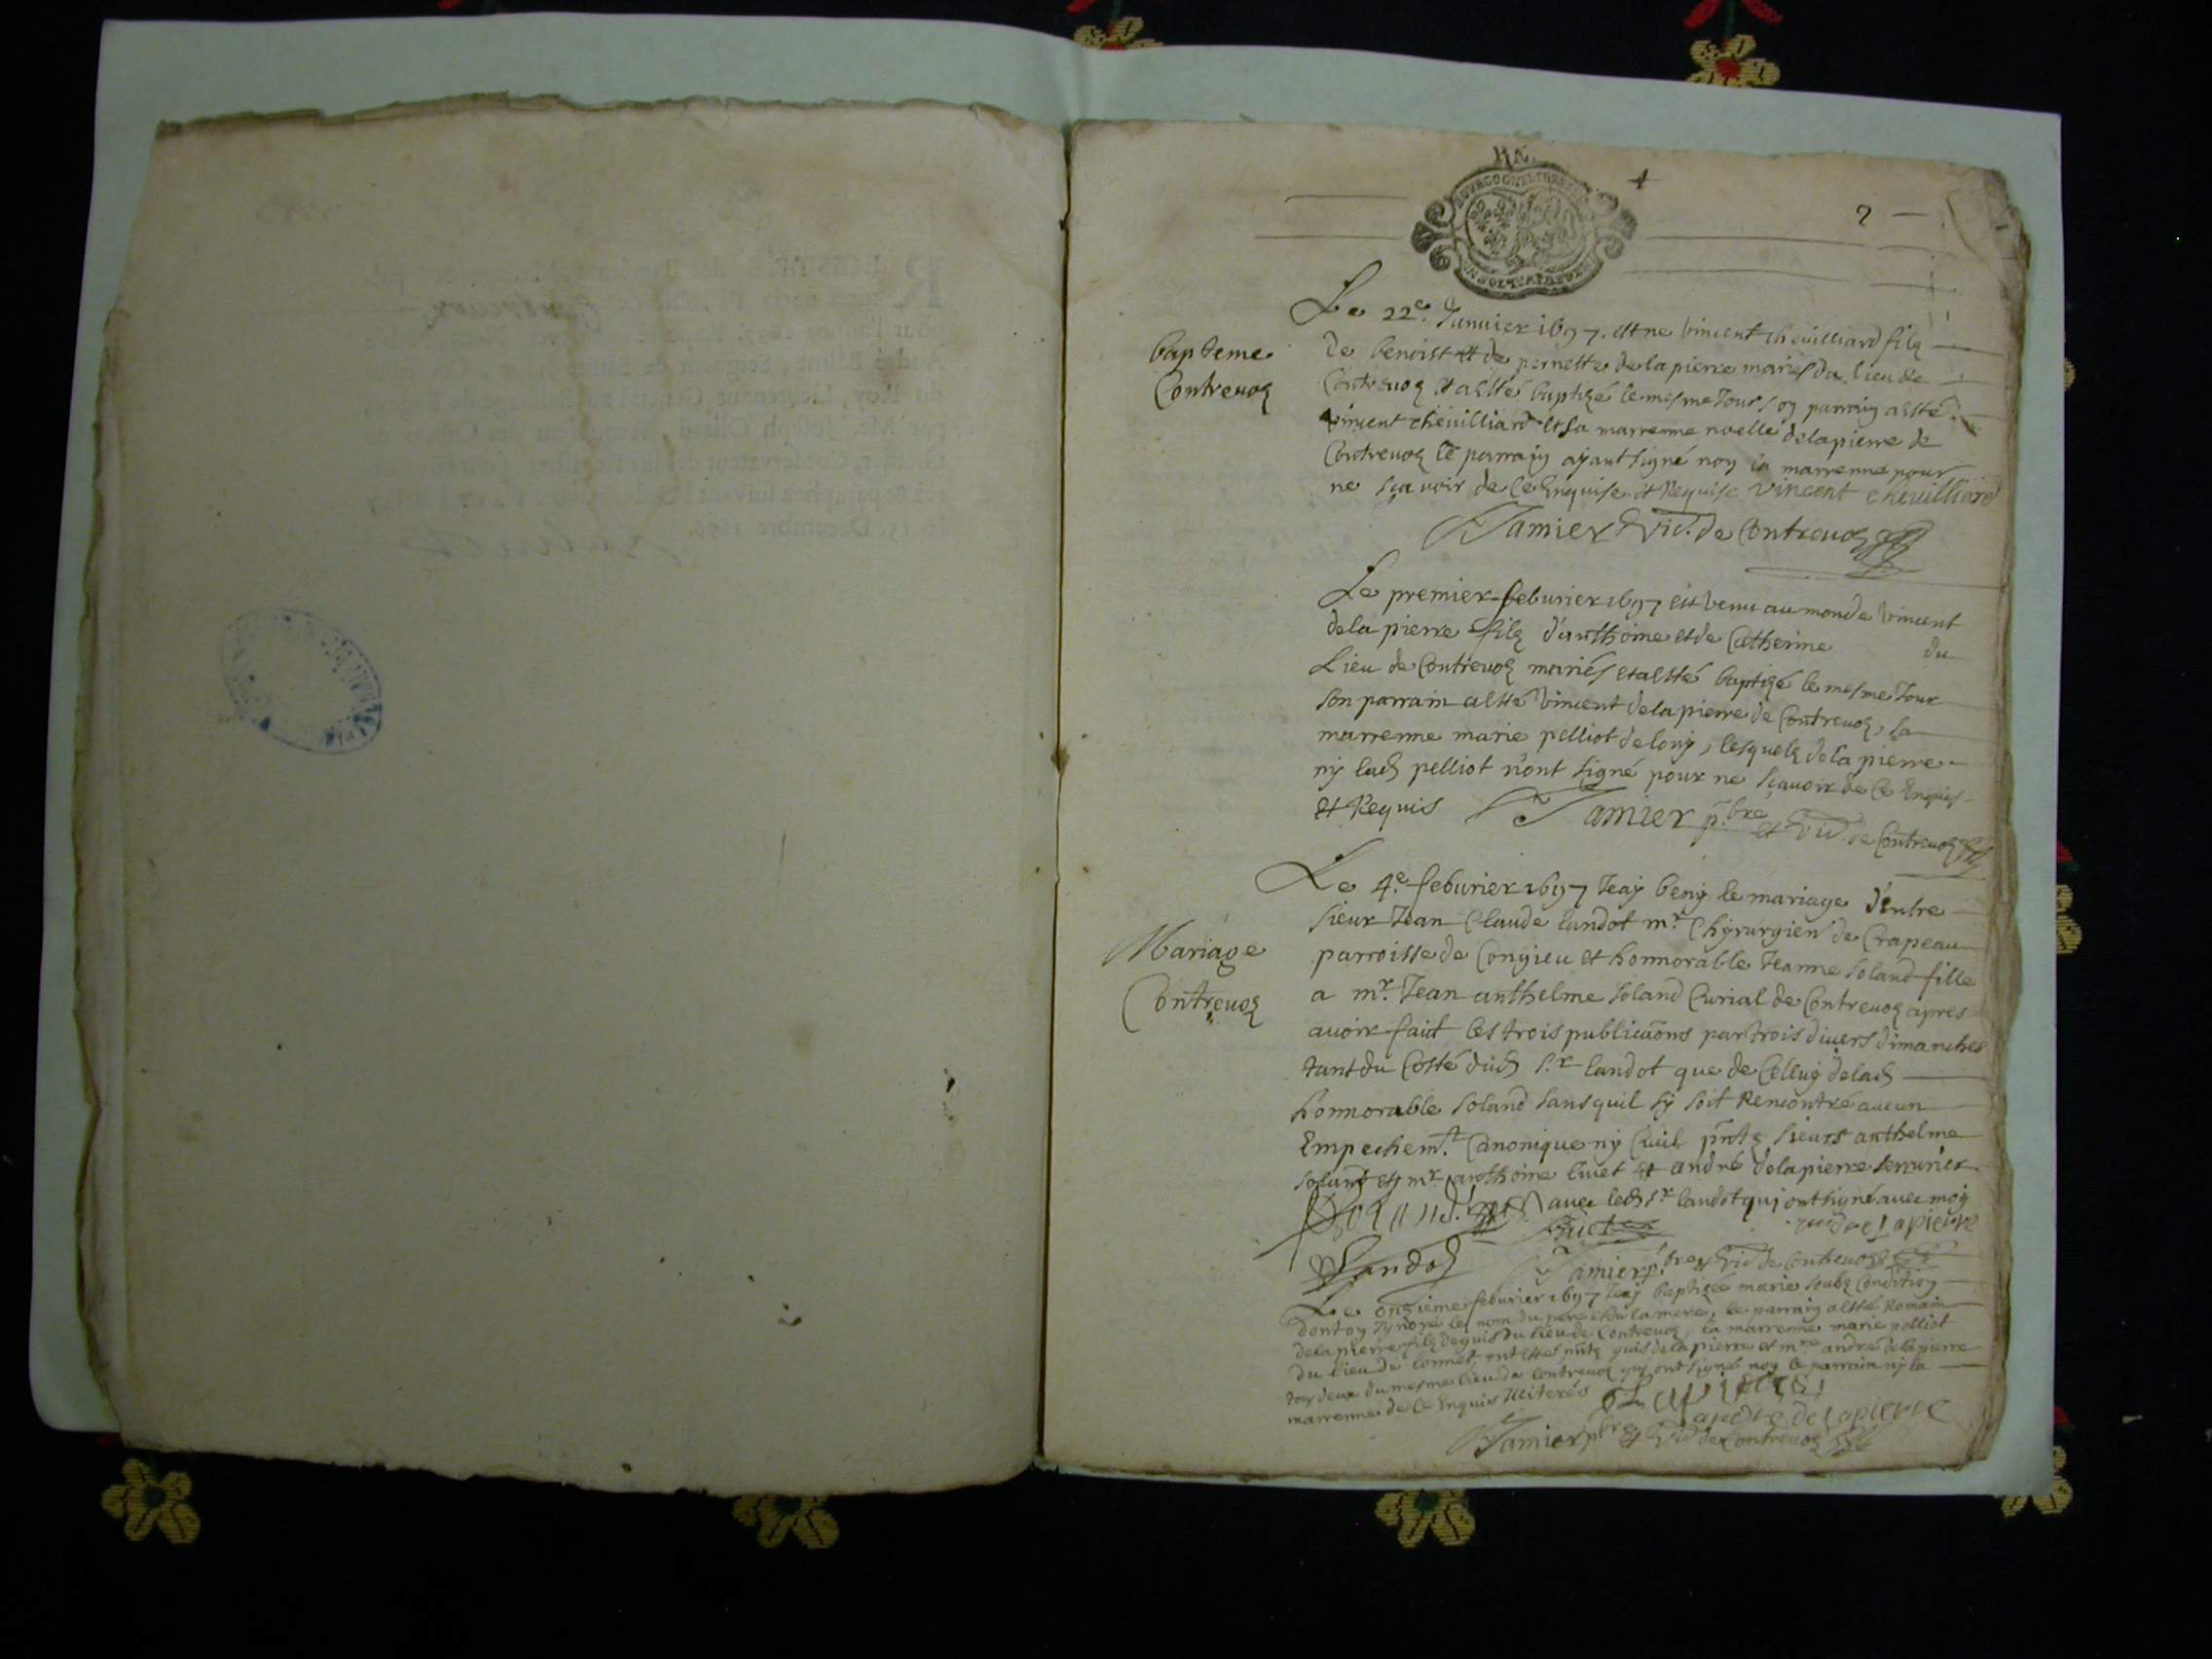 2
bapteme
Contrevoz
Le 22e. Januier 1697. est ne vincent cheuilliard filz
de benoist et de pernette delapierre mariés du lieu de
Contreuoz et a esté baptizé le mesme Jour son parrain a esté
vincent cheuilliard et sa marrenne noelle delapierre de
Contreuoz le parrain ayant signé non la marrenne pour
ne sçauoir de ce Enquise et Requise vincent cheuilliard
Jamier Vic. de Contreuoz
Le premier feburier 1697 est venu au monde vincent
delapierre filz d'anthoine et de Catherine du
Lieu de Contreuoz mariés et a esté baptizé le mesme Jour
son parrain a esté vincent delapierre de Contreuoz, sa
marrenne marie pelliot de lony, lesquelz delapierre
ny lad pelliot n'ont signé pour ne sçauoir de ce Enquis
et Requis Jamier pbre et Vic. de Contreuoz
Mariage
Contreuoz
Le 4e. feburier 1697 Jeay beny le mariage d'entre
sieur Jean Claude landot mr. Chyrurgien de Crapeau
parroisse de Conzieu et honnorable Jeanne soland fille
a mr. Jean anthelme soland Curial de Contreuoz apres
auoir faict les trois publicaons par trois diuers dimanches
tant du Costé dud sr. landot que de Celluy delad
honnorable soland sans quil sy soit Rencontré aucun
Empechemt. Canonique ny Ciuil pntz sieurs anthelme
soland et mr. anthoine liuet et andré delapierre serrurier
auec led sr. landot qui ont signé auec moy
Soland Liuet delapierre
Landot Jamier pbre et Vic de Contreuoz
Le onzieme feburier 1697 Jeay baptizée marie soubz Condition
dont on Jgnore le nom du pere et de la mere, le parrain a esté Romain
delapierre filz de guis du lieu de Contreuoz, la marrenne marie pelliot
du lieu de lonnet, ont estes pntz guis delapierre et mre andré delapierre
tous deux du mesme lieu de Contreuoz qui ont signé non le parrain ny la
marrenne de ce Enquis Illiterés
andre delapierre
Jamier pbre et Vic de Contreuoz